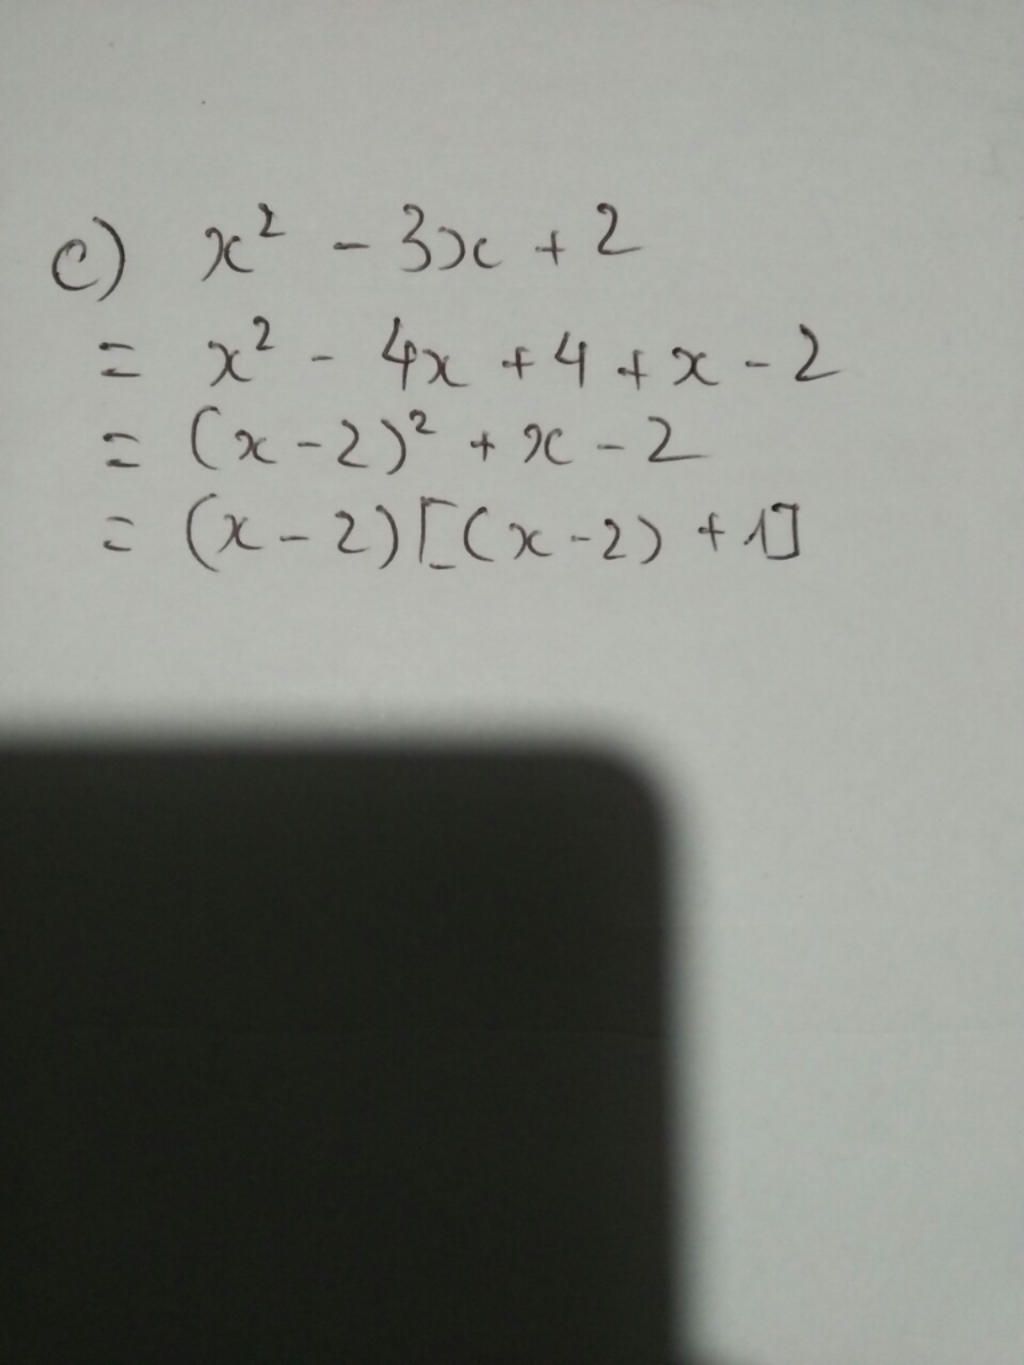 c) x² - 3x + 2
= x² - 4x + 4 + x - 2
= (x - 2)² + x - 2
= (x - 2)[(x - 2) + 1]